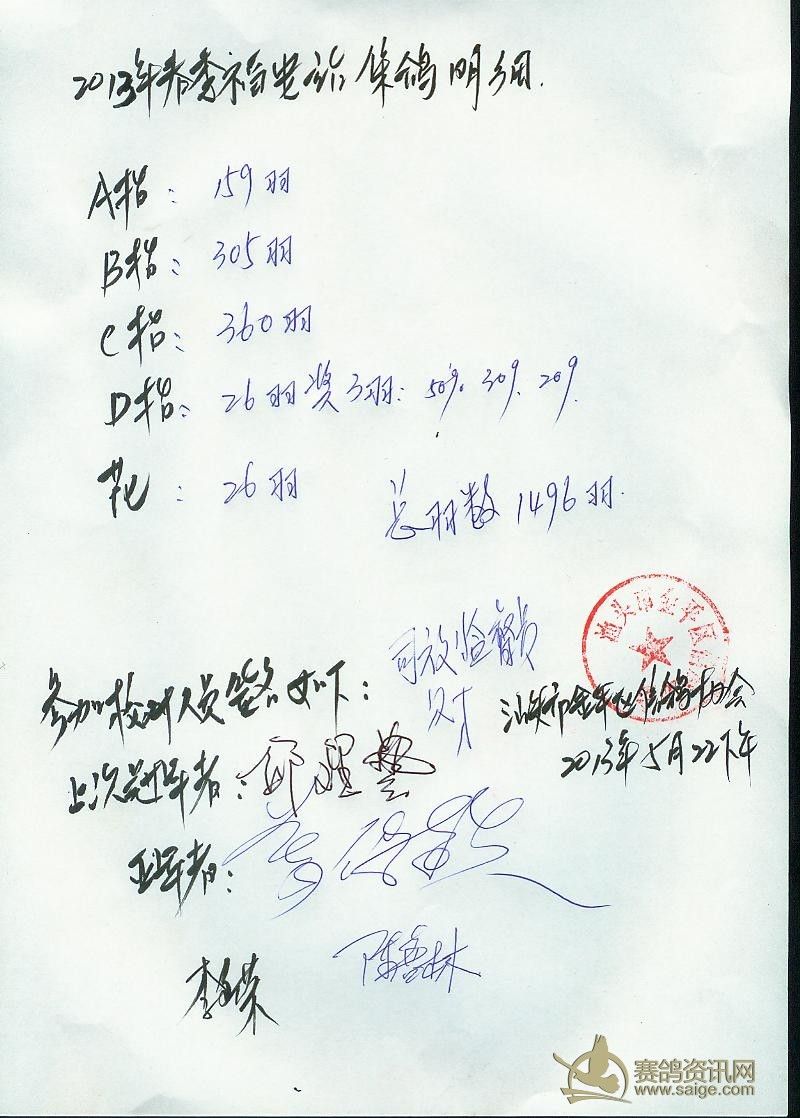 2013年春季福安站集鸽明细.
A指: 159羽
B指: 305羽
C指: 360羽
D指: 26羽奖3羽: 50%. 30%. 20%.
花: 26羽
总羽数1496羽.
司放验督员
汕头市金平区
参加校对人员签名如下:
汕头市金平区信鸽协会
2013年5月22下午
上次冠军者:
亚军者:
李 荣
陈 林
赛鸽资讯网
www.saige.com